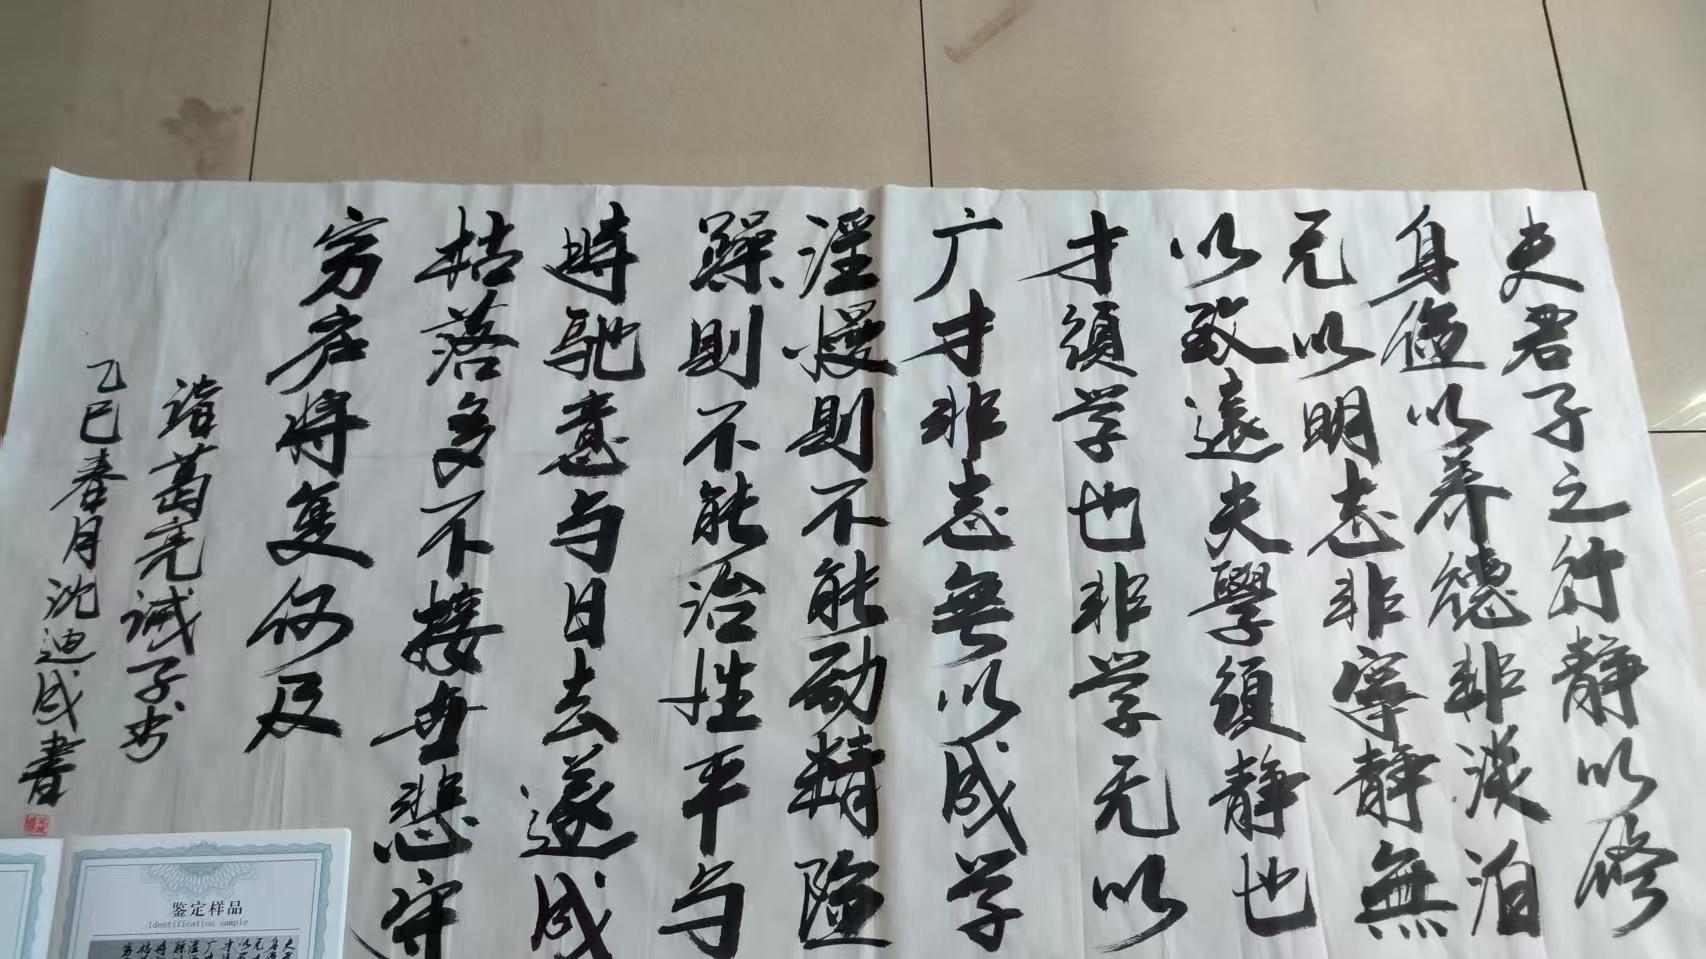 夫君子之行静以修
身俭以养德非淡泊
无以明志非寧静無
以致遠夫學須静也
才須学也非学无以
广才非志無以成学
淫慢则不能励精险
躁则不能治性平与
時驰意与日去遂成
枯落多不接世悲守
穷庐将复何及
诸葛亮诫子书
乙巳春月沈迪成書
鉴定样品
Identification sample